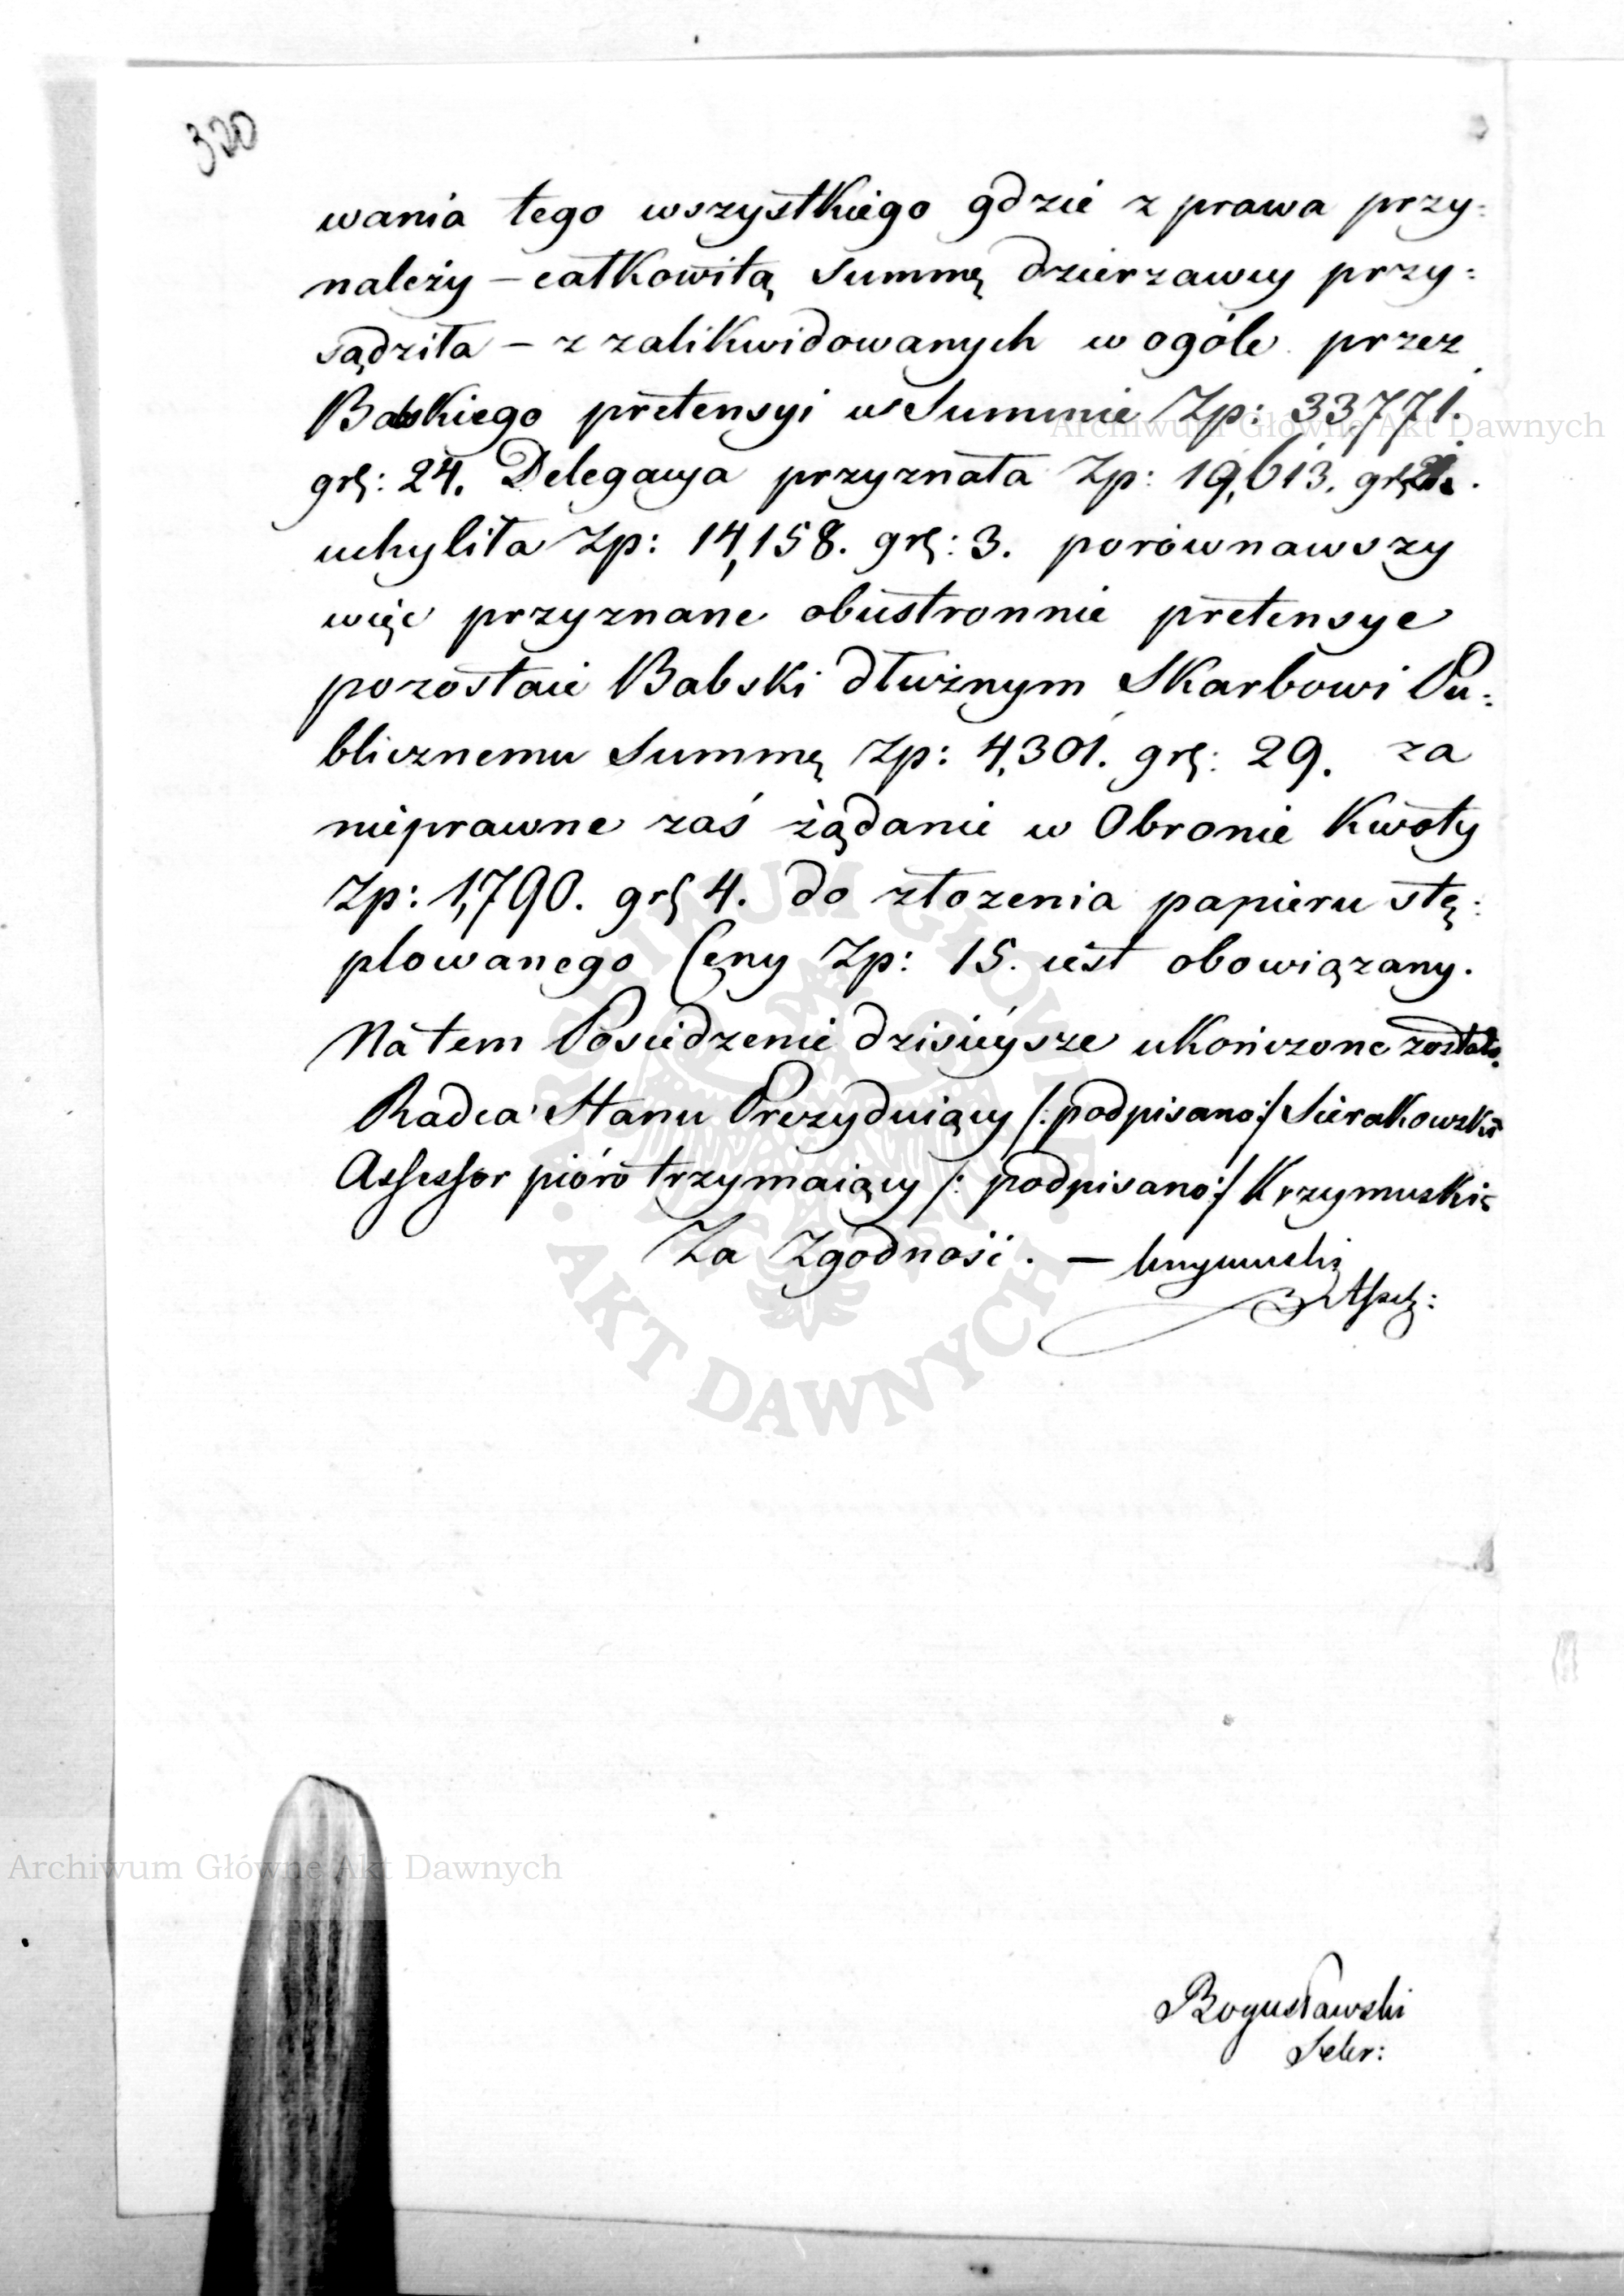 320
wania tego wszystkiego gdzie z prawa przy:
należy – całkowitą Summę dzierzawcy przy:
sądziła – z zalikwidowanych w ogóle przez
Babskiego pretensyi w Summie Zp: 33771.
grl: 24. Delegacya przyznała Zp: 19,613. gr: 21.
uchyliła Zp: 14,158. gr: 3. porównawszy
więc przyznane obustronnie pretensye
pozostaie Babski dłużnym Skarbowi Pu:
blicznemu Summę Zp: 4,301. gr: 29. za
nieprawne zaś żądanie w Obronie Kwoty
Zp: 1,790. gr 4. do złozenia papieru stę:
plowanego Ceny Zp: 15. iest obowiązany.
Na tem Posiedzenie dzisieysze ukończone zostało.
Radca Stanu Prezyduiący /: podpisano :/ Sierakowski
Assessor pióro trzymaiący /: podpisano :/ Krzymuski
Za Zgodność. – Krzymuski
Assely:
Bogusławski
Sekr:
Archiwum Główne Akt Dawnych
Archiwum Główne Akt Dawnych
ARCHIWUM GŁÓWNE AKT DAWNYCH